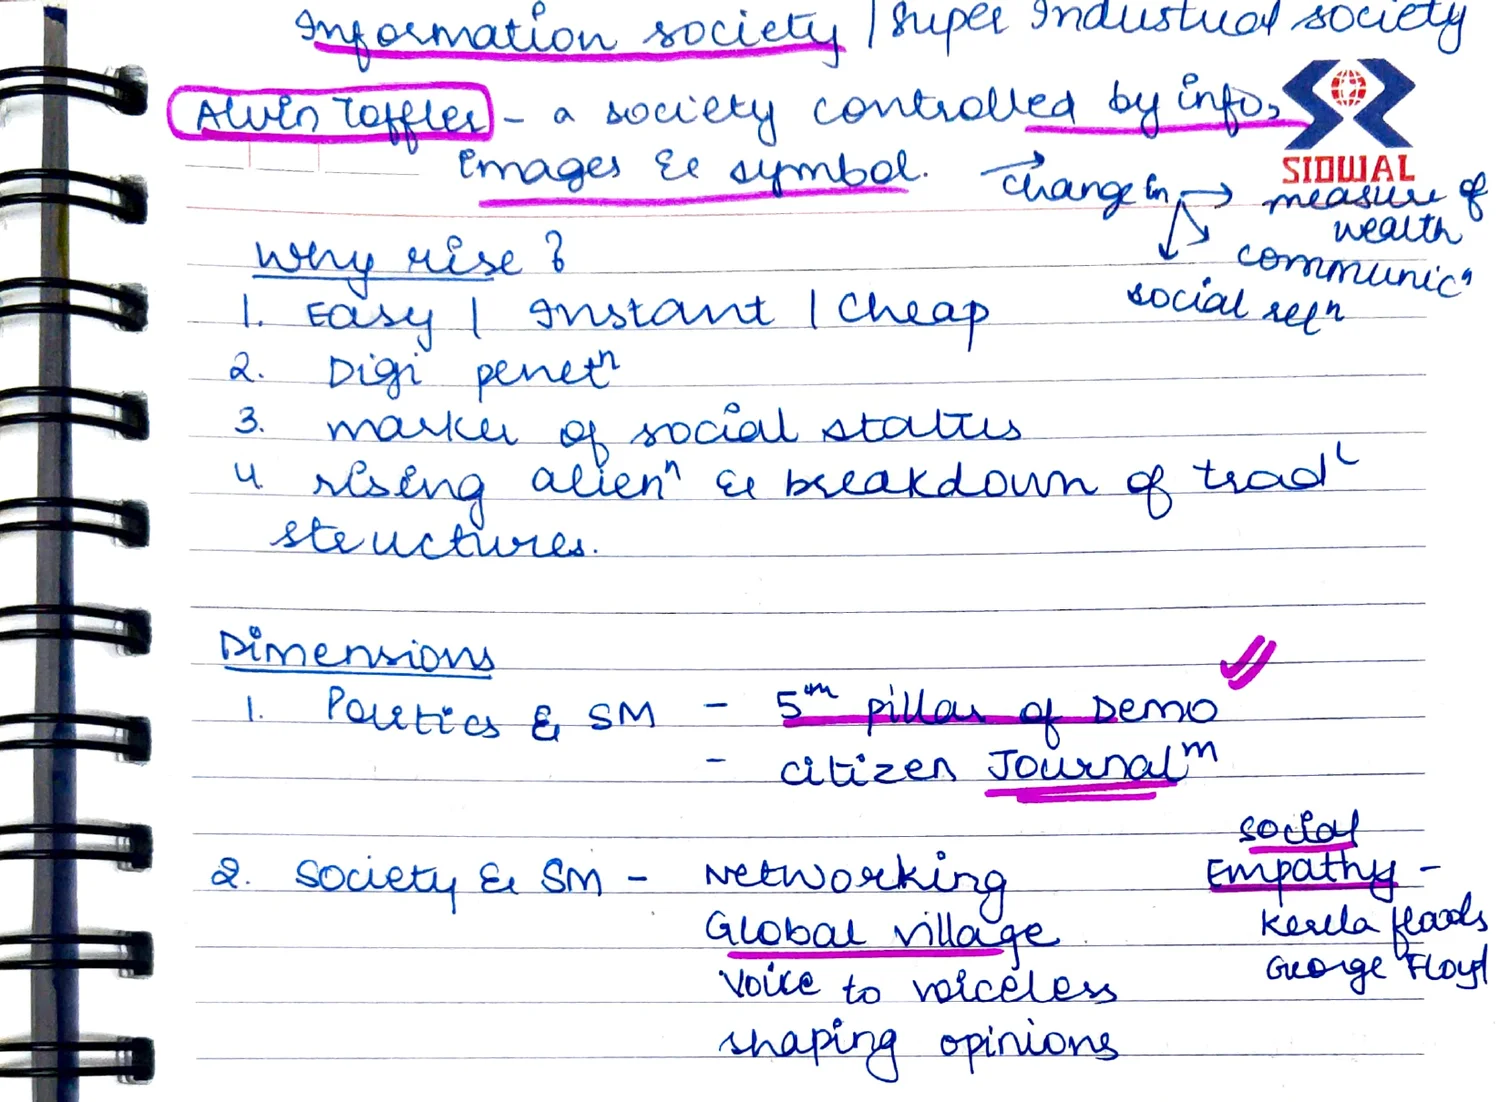 Information society / Super Industrial society
Alvin Toffler - a society controlled by info,
Images & symbol. → change in → measure of
wealth
communicⁿ
social relⁿ
SIDWAL
Why rise?
1. Easy | Instant | Cheap
2. Digi penetⁿ
3. marker of social status
4. rising alienⁿ & breakdown of tradˡ
structures.
Dimensions
1. Politics & SM - 5ᵗʰ pillar of Demo
- citizen Journalᵐ
2. Society & SM - Networking
Global village
Voice to voiceless
shaping opinions
Social
Empathy -
Kerela floods
George Floyd